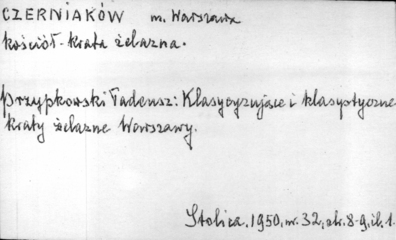 CZERNIAKÓW m. Warszawa
kościół - krata żelazna.
Przypkowski Tadeusz: Klasycyzujące i klasystyczne
kraty żelazne Warszawy.
Stolica. 1950, nr. 32, str. 8-9, il. 1.